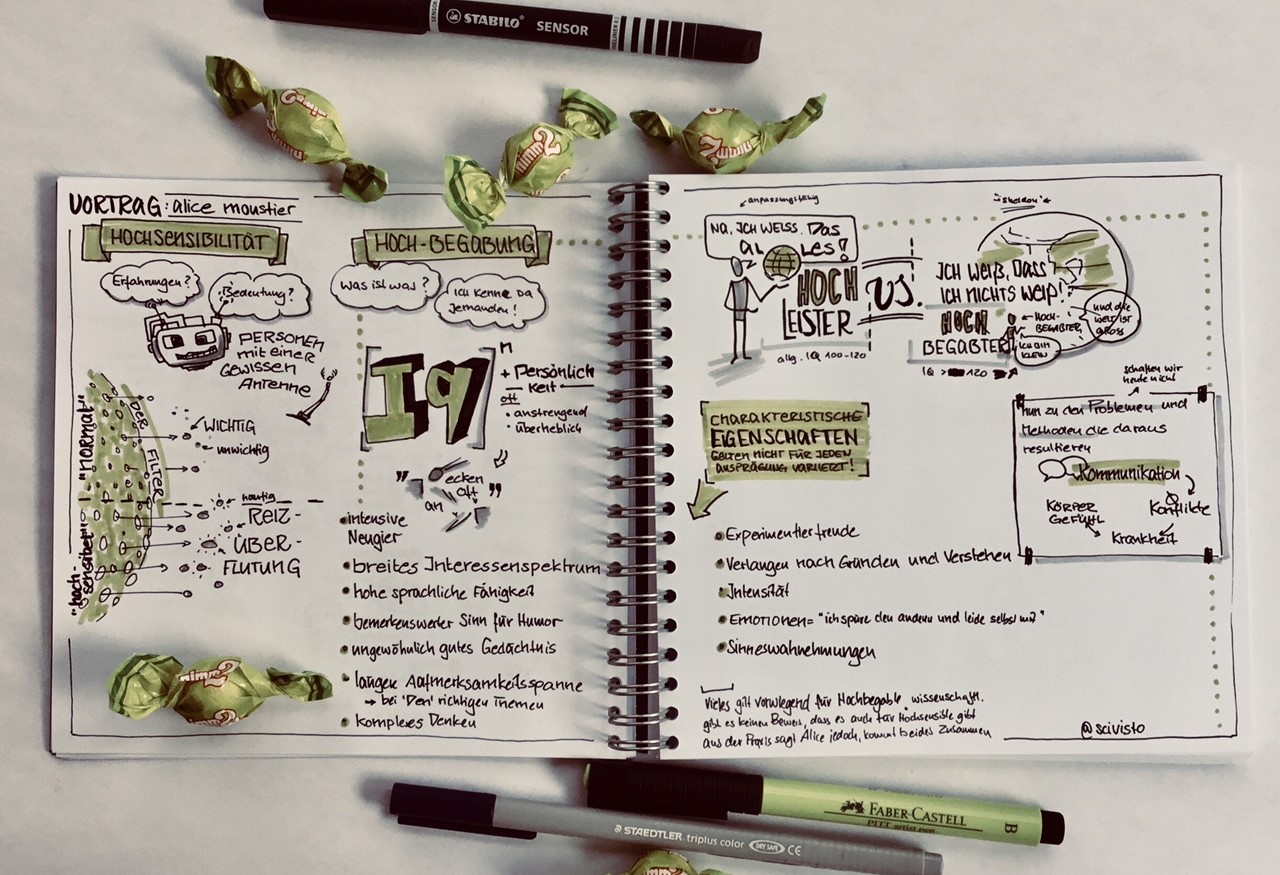 STABILO® SENSOR
nimm2
nimm2
nimm2
VORTRAG: alice moustier
HOCHSENSIBILITÄT
Erfahrungen?
Bedeutung?
PERSONEN
mit einer
Gewissen
Antenne
"normal"
DER FILTER
WICHTIG
unwichtig
"hoch-
sensibel"
REIZ-
ÜBER-
FLUTUNG
HOCH-BEGABUNG
Was ist was?
Ich kenne da
jemanden!
IQ
+ Persönlich
keit
oft
• anstrengend
• überheblich
" ecken
oft "
an
• intensive
Neugier
• breites Interessenspektrum
• hohe sprachliche Fähigkeit
• bemerkenswerter Sinn für Humor
• ungewöhnlich gutes Gedächtnis
• langen Aufmerksamkeitsspanne
→ bei 'Den' richtigen Themen
• komplexes Denken
nimm2
anpassungsfähig
NA, ICH WEISS. Das
ALLES!
HOCH
LEISTER
allg. IQ 100-120
VS.
"Sheldon"
ICH WEIß, DASS
ICH NICHTS WEIß!
HOCH
BEGABTER
IQ > 120
← HOCH-
BEGABTER
ICH BIN
KLEIN
und die
Welt ist
GROSS
CHARAKTERISTISCHE
EIGENSCHAFTEN
GELTEN NICHT FÜR JEDEN
AUSPRÄGUNG VARIIERT!
• Experimentierfreude
• Verlangen nach Gründen und Verstehen
• Intensität
• EMOTIONEN= "ich spüre den andern und leide selbst mit"
• Sinneswahrnehmungen
schaffen wir
heute nicht
nun zu den Problemen und
Methoden die daraus
resultieren
Kommunikation
Konflikte
KÖRPER
GEFÜHL
Krankheit
Vieles gilt vorwiegend für Hochbegabte. wissenschaft.
gibt es keinen Beweis, dass es auch für Hochsensible gibt
aus der Praxis sagt Alice jedoch, kommt beides Zusammen
@scivisto
FABER-CASTELL
PITT artist pen B
STAEDTLER triplus color DRY SAFE CE